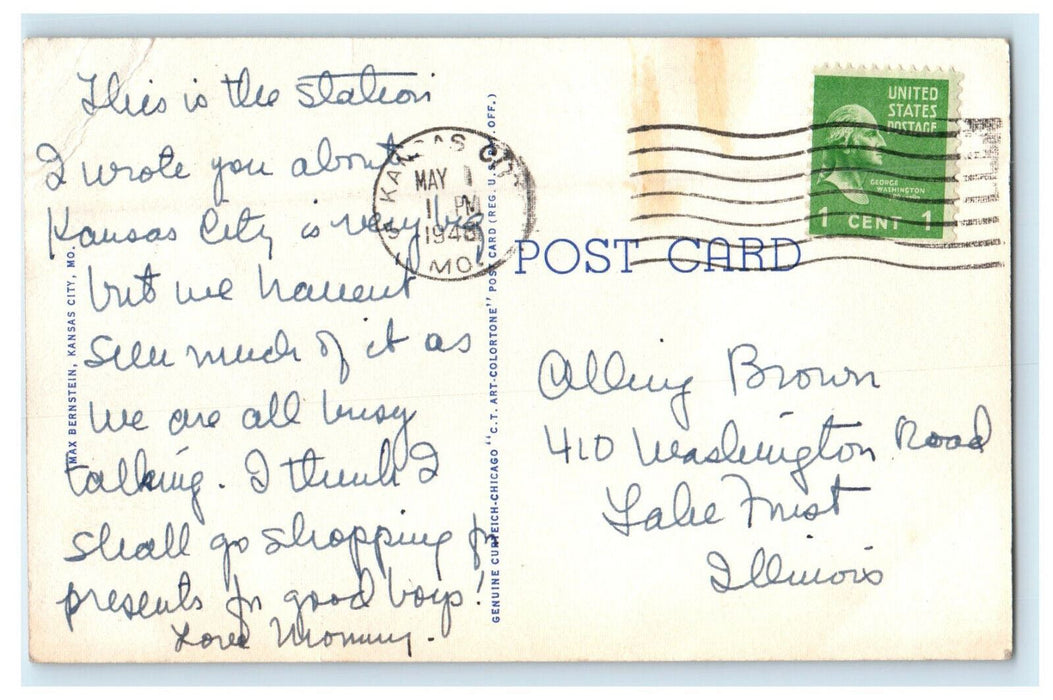 This is the station
I wrote you about
Kansas City is very big
but we havent
seen much of it as
we are all busy
talking. I think I
shall go shopping for
presents for good boys!
Love Mommy.
MAX BERNSTEIN, KANSAS CITY, MO.
GENUINE CURTEICH-CHICAGO "C.T. ART-COLORTONE" POST CARD (REG. U.S. PAT. OFF.)
KANSAS CITY
MAY 1
PM
1948
MO.
UNITED
STATES
POSTAGE
GEORGE
WASHINGTON
1 CENT 1
POST CARD
Alling Brown
410 Washington Road
Lake Forest
Illinois